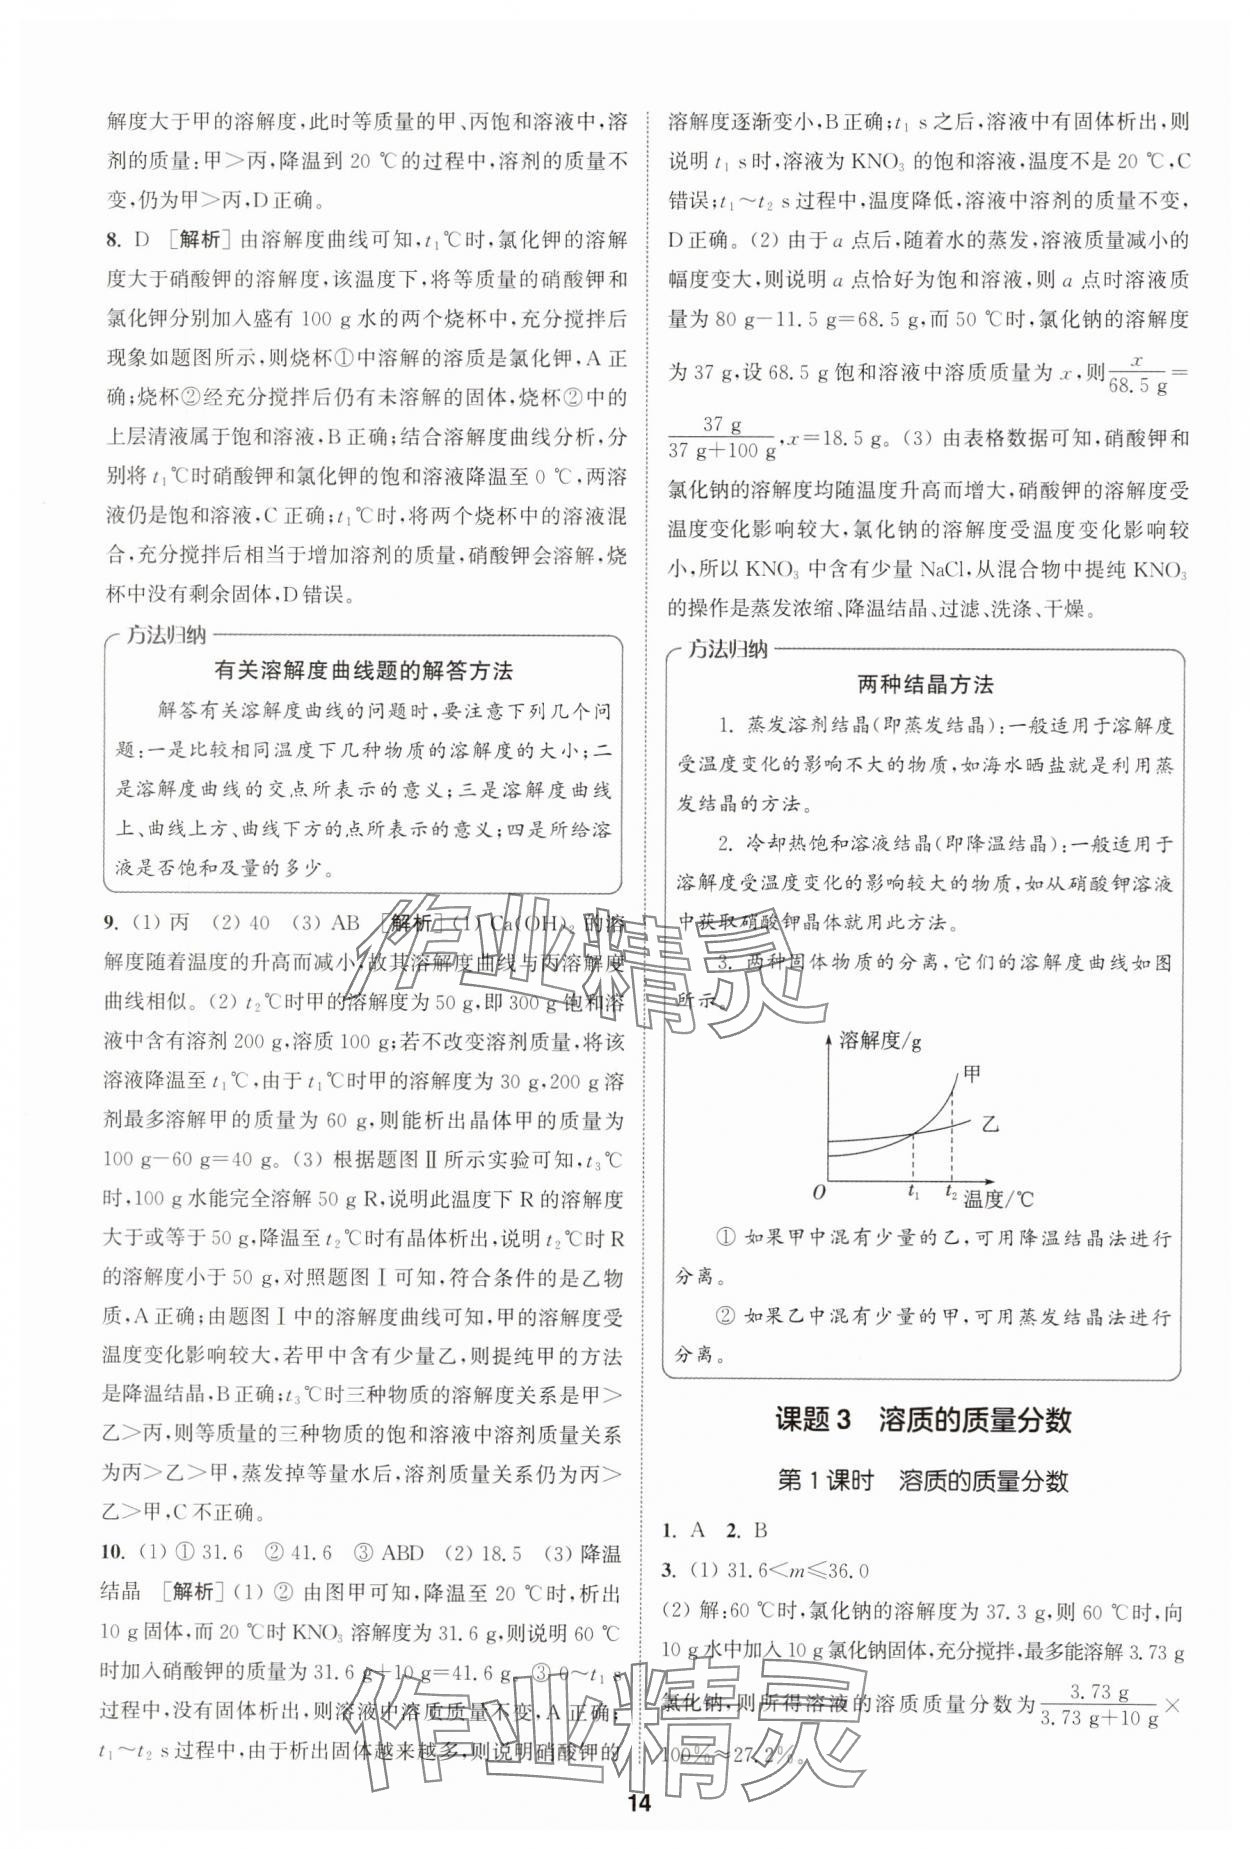 解度大于甲的溶解度,此时等质量的甲、丙饱和溶液中,溶
剂的质量:甲>丙,降温到 20 ℃的过程中,溶剂的质量不
变,仍为甲>丙,D 正确。
8. D [解析] 由溶解度曲线可知,t₁℃时,氯化钾的溶解
度大于硝酸钾的溶解度,该温度下,将等质量的硝酸钾和
氯化钾分别加入盛有 100 g 水的两个烧杯中,充分搅拌后
现象如题图所示,则烧杯①中溶解的溶质是氯化钾,A 正
确;烧杯②经充分搅拌后仍有未溶解的固体,烧杯②中的
上层清液属于饱和溶液,B 正确;结合溶解度曲线分析,分
别将 t₁℃时硝酸钾和氯化钾的饱和溶液降温至 0 ℃,两溶
液仍是饱和溶液,C 正确;t₁℃时,将两个烧杯中的溶液混
合,充分搅拌后相当于增加溶剂的质量,硝酸钾会溶解,烧
杯中没有剩余固体,D 错误。
方法归纳
有关溶解度曲线题的解答方法
解答有关溶解度曲线的问题时,要注意下列几个问
题:一是比较相同温度下几种物质的溶解度的大小;二
是溶解度曲线的交点所表示的意义;三是溶解度曲线
上、曲线上方、曲线下方的点所表示的意义;四是所给溶
液是否饱和及量的多少。
9. (1) 丙 (2) 40 (3) AB [解析] (1) Ca(OH)₂ 的溶
解度随着温度的升高而减小,故其溶解度曲线与丙溶解度
曲线相似。(2) t₂℃时甲的溶解度为 50 g,即 300 g 饱和溶
液中含有溶剂 200 g,溶质 100 g;若不改变溶剂质量,将该
溶液降温至 t₁℃,由于 t₁℃时甲的溶解度为 30 g,200 g 溶
剂最多溶解甲的质量为 60 g,则能析出晶体甲的质量为
100 g-60 g=40 g。(3) 根据题图Ⅱ所示实验可知,t₃℃
时,100 g 水能完全溶解 50 g R,说明此温度下 R 的溶解度
大于或等于 50 g,降温至 t₂℃时有晶体析出,说明 t₂℃时 R
的溶解度小于 50 g,对照题图Ⅰ可知,符合条件的是乙物
质,A 正确;由题图Ⅰ中的溶解度曲线可知,甲的溶解度受
温度变化影响较大,若甲中含有少量乙,则提纯甲的方法
是降温结晶,B 正确;t₃℃时三种物质的溶解度关系是甲>
乙>丙,则等质量的三种物质的饱和溶液中溶剂质量关系
为丙>乙>甲,蒸发掉等量水后,溶剂质量关系仍为丙>
乙>甲,C 不正确。
10. (1) ① 31.6 ② 41.6 ③ ABD (2) 18.5 (3) 降温
结晶 [解析] (1) ② 由图甲可知,降温至 20 ℃时,析出
10 g 固体,而 20 ℃时 KNO₃ 溶解度为 31.6 g,则说明 60 ℃
时加入硝酸钾的质量为 31.6 g+10 g=41.6 g。③ 0~t₁ s
过程中,没有固体析出,则溶液中溶质质量不变,A 正确;
t₁~t₂ s 过程中,由于析出固体越来越多,则说明硝酸钾的
溶解度逐渐变小,B 正确;t₁ s 之后,溶液中有固体析出,则
说明 t₁ s 时,溶液为 KNO₃ 的饱和溶液,温度不是 20 ℃,C
错误;t₁~t₂ s 过程中,温度降低,溶液中溶剂的质量不变,
D 正确。(2) 由于 a 点后,随着水的蒸发,溶液质量减小的
幅度变大,则说明 a 点恰好为饱和溶液,则 a 点时溶液质
量为 80 g-11.5 g=68.5 g,而 50 ℃时,氯化钠的溶解度
为 37 g,设 68.5 g 饱和溶液中溶质质量为 x,则 x/68.5 g =
37 g/37 g+100 g,x=18.5 g。(3) 由表格数据可知,硝酸钾和
氯化钠的溶解度均随温度升高而增大,硝酸钾的溶解度受
温度变化影响较大,氯化钠的溶解度受温度变化影响较
小,所以 KNO₃ 中含有少量 NaCl,从混合物中提纯 KNO₃
的操作是蒸发浓缩、降温结晶、过滤、洗涤、干燥。
方法归纳
两种结晶方法
1. 蒸发溶剂结晶(即蒸发结晶):一般适用于溶解度
受温度变化的影响不大的物质,如海水晒盐就是利用蒸
发结晶的方法。
2. 冷却热饱和溶液结晶(即降温结晶):一般适用于
溶解度受温度变化的影响较大的物质,如从硝酸钾溶液
中获取硝酸钾晶体就用此方法。
3. 两种固体物质的分离,它们的溶解度曲线如图
所示。
溶解度/g
甲
乙
O t₁ t₂ 温度/℃
① 如果甲中混有少量的乙,可用降温结晶法进行
分离。
② 如果乙中混有少量的甲,可用蒸发结晶法进行
分离。
课题 3 溶质的质量分数
第 1 课时 溶质的质量分数
1. A 2. B
3. (1) 31.6<m≤36.0
(2) 解:60 ℃时,氯化钠的溶解度为 37.3 g,则 60 ℃时,向
10 g 水中加入 10 g 氯化钠固体,充分搅拌,最多能溶解 3.73 g
氯化钠,则所得溶液的溶质质量分数为 3.73 g/3.73 g+10 g ×
100%≈27.2%。
14
作业精灵
作业精灵